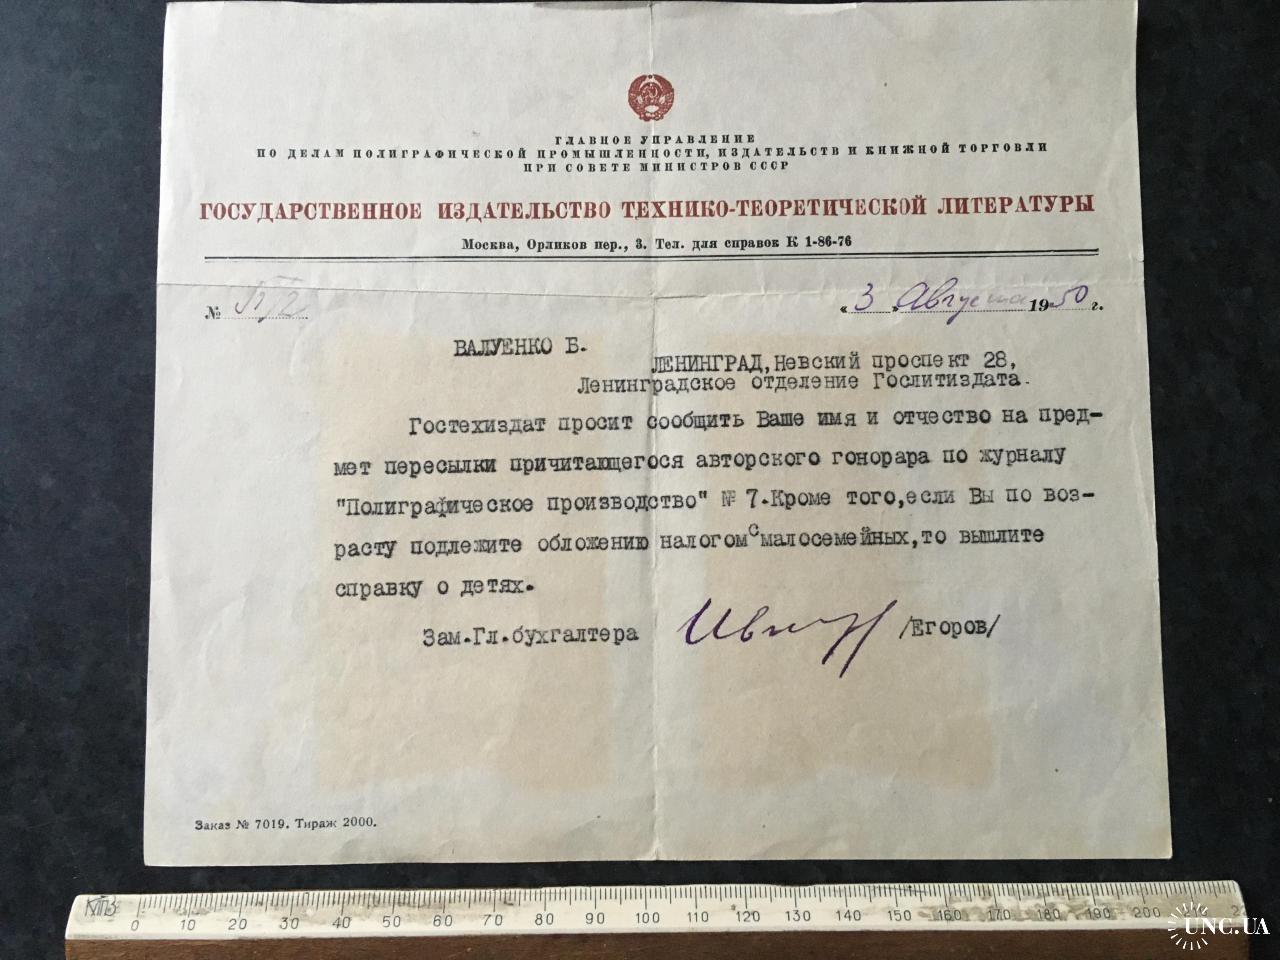 ГЛАВНОЕ УПРАВЛЕНИЕ
ПО ДЕЛАМ ПОЛИГРАФИЧЕСКОЙ ПРОМЫШЛЕННОСТИ, ИЗДАТЕЛЬСТВ И КНИЖНОЙ ТОРГОВЛИ
ПРИ СОВЕТЕ МИНИСТРОВ СССР
ГОСУДАРСТВЕННОЕ ИЗДАТЕЛЬСТВО ТЕХНИКО-ТЕОРЕТИЧЕСКОЙ ЛИТЕРАТУРЫ
Москва, Орликов пер., 3. Тел. для справок К 1-86-76
№
« 3 » Августа 1950 г.
ВАЛУЕНКО Б.
ЛЕНИНГРАД, Невский проспект 28,
Ленинградское отделение Гослитиздата.
Гостехиздат просит сообщить Ваше имя и отчество на пред-
мет пересылки причитающегося авторского гонорара по журналу
"Полиграфическое производство" № 7. Кроме того, если Вы по воз-
расту подлежите обложению налогом с малосемейных, то вышлите
справку о детях.
Зам.Гл.бухгалтера /Егоров/
Заказ № 7019. Тираж 2000.
0 10 20 30 40 50 60 70 80 90 100 110 120 130 140 150 160 170 180 190 200
UNC.UA